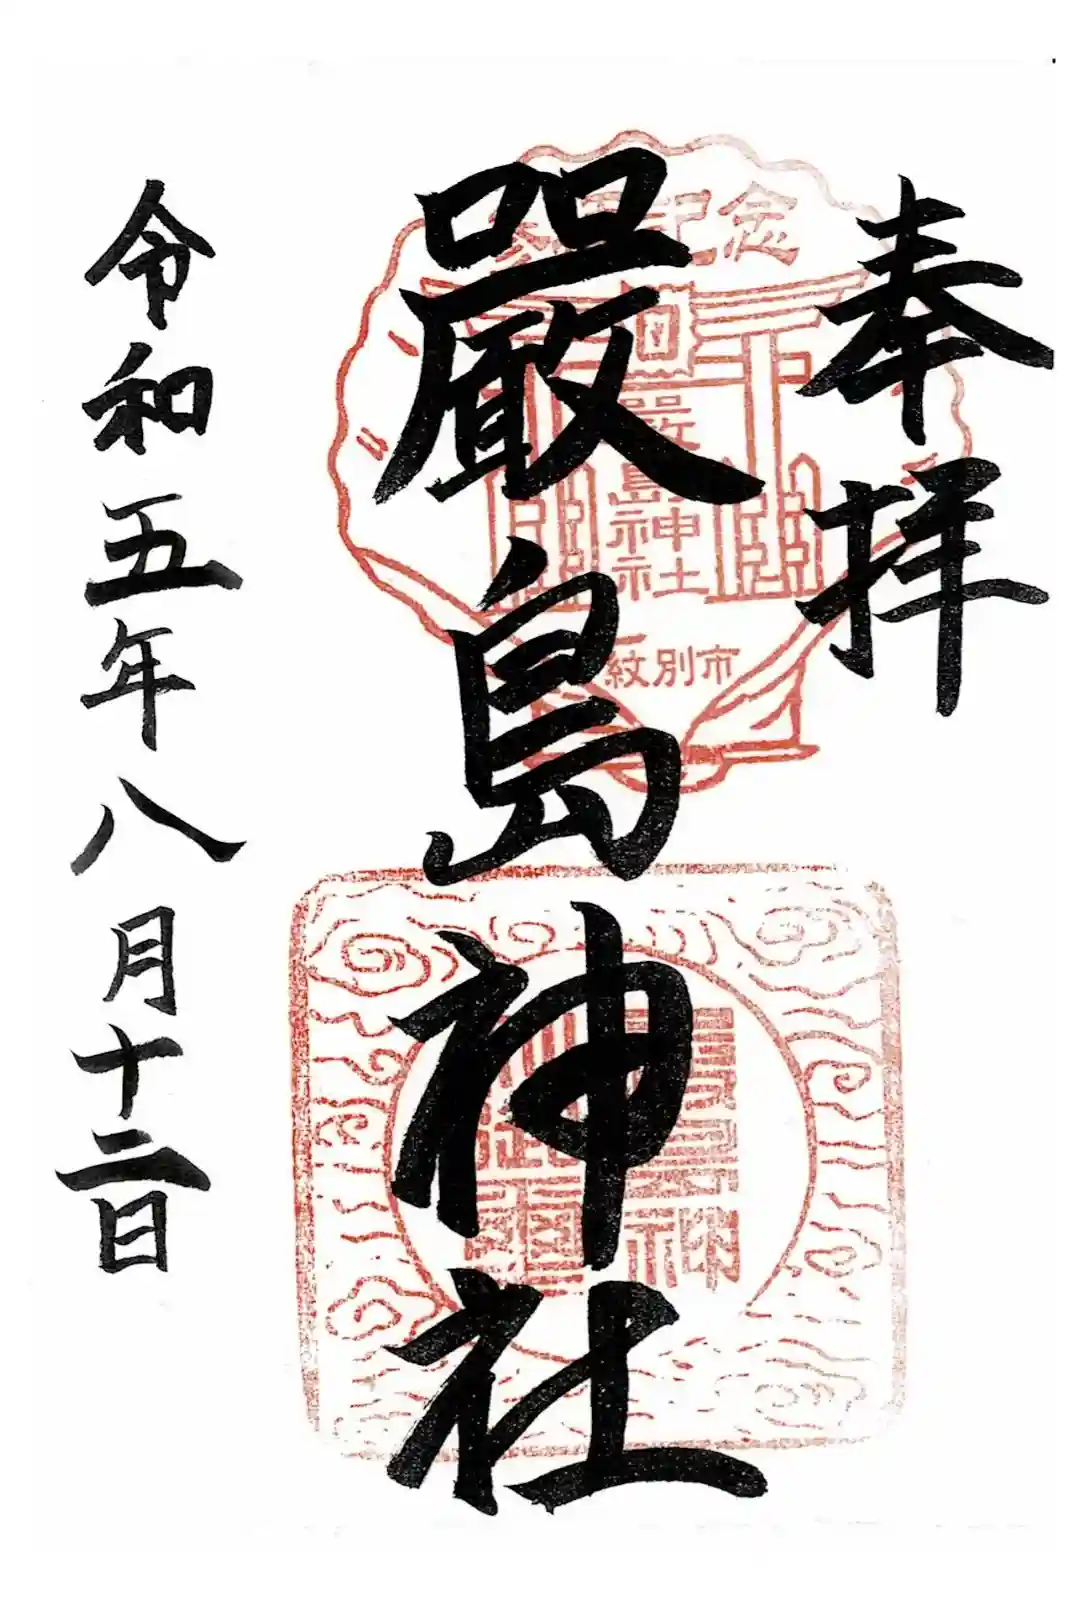 奉拝
嚴島神社
令和五年八月十二日
記念
嚴島神社
紋別市